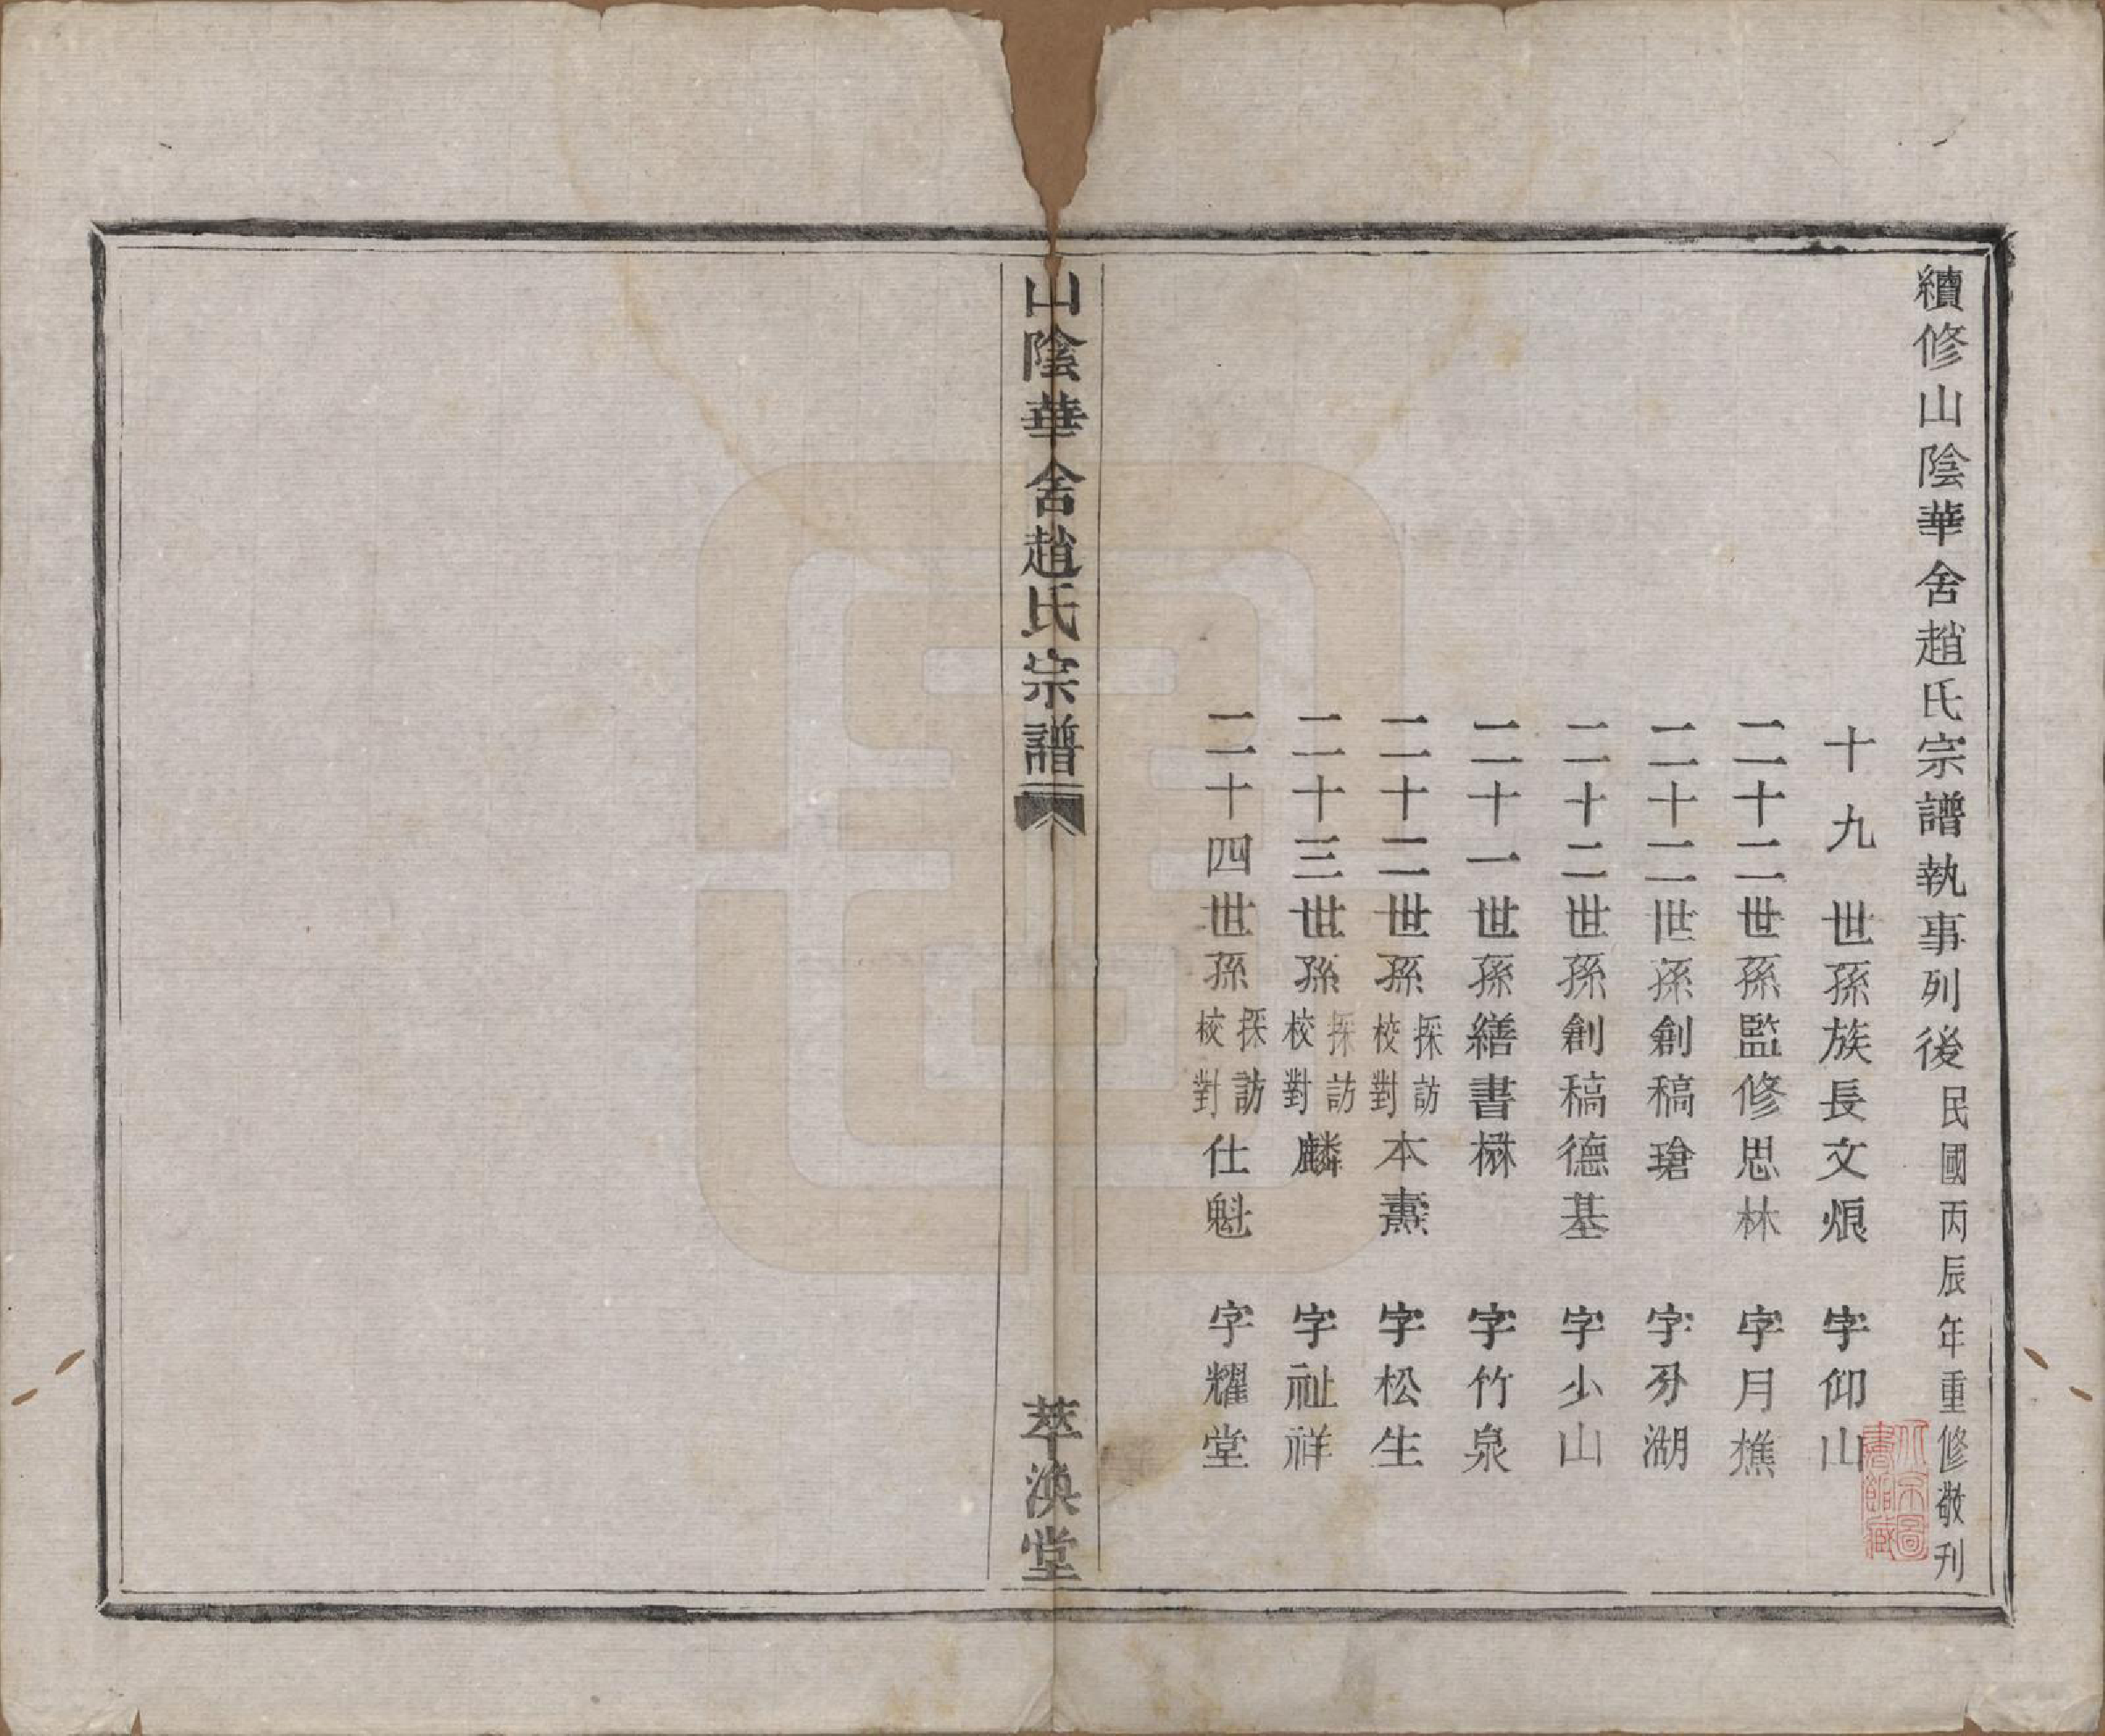 續修山陰華舍趙氏宗譜執事列後民國丙辰年重修敬刊
十九世孫族長文烺 字仰山
二十二世孫監修思林 字月樵
二十二世孫創稿瑲 字芬湖
二十二世孫創稿德基 字少山
二十一世孫繕書楙 字竹泉
二十二世孫採訪校對本燾 字松生
二十三世孫採訪校對麟 字祉祥
二十四世孫採訪校對仕魁 字耀堂
山陰華舍趙氏宗譜
萃渙堂